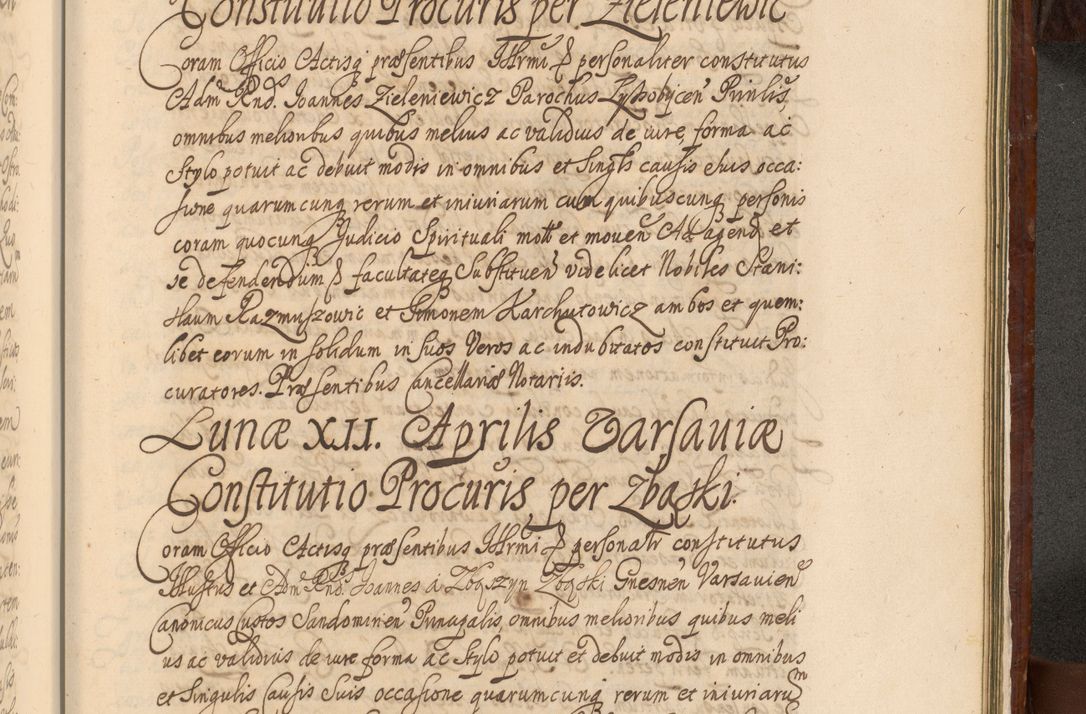 Constitutio Procuris per Zieleniewic
Coram Officio Actisq præsentibus Illrmi & personaliter constitutus
Adm Rnd. Ioannes Zieleniewicz Parochus Lyssobycen Prinlis,
omnibus melioribus quibus melius ac validius de iure, forma ac
stylo potuit ac debuit modis in omnibus et Singls causis eius occa:
sione quarumcunq rerum et iniuriarum cum quibuscunq personis
coram quocunq Judicio Spirituali mott et moven Ad agend et
se defendendum & facultateq Substituen videlicet Nobiles Stani:
slaum Razmuszowic et Simonem Karchutowicz ambos et quem:
libet eorum in solidum in suos Veros ac indubitatos constituit Pro:
curatores. Præsentibus Cancellariæ Notariis.
Lunæ XII. Aprilis Varsaviæ
Constitutio Procuris per Zbąski.
Coram Officio Actisq præsentibus Illrmi & personalr constitutus
Illustris et Adm Rnd. Ioannes a Zbąszyn Zbąski Gnesnen Varsavien
Canonicus Custos Sandomirien Principalis, omnibus melioribus quibus meli
us ac validius de iure forma ac Stylo potuit et debuit modis in omnibus
et Singulis Causis Suis occasione quarumcunq rerum et iniuriarum